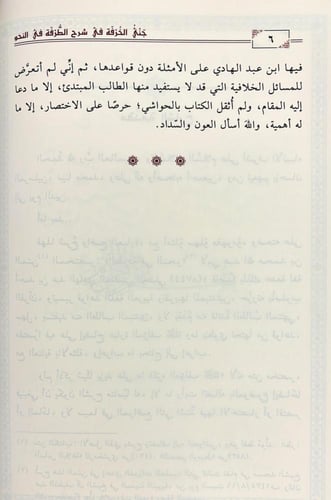 جَنْيُ الخُرْفَة فِي شَرْحِ الطُّرْفَة فِي النَّحو
٦
فيها ابن عبد الهادي على الأمثلة دون قواعدها، ثم إنِّي لم أتعرَّض
للمسائل الخلافية التي قد لا يستفيد منها الطالب المبتدئ، إلا ما دعا
إليه المقام، ولم أُثقل الكتاب بالحواشي؛ حرصًا على الاختصار، إلا ما
له أهمية، واللهَ أسأل العون والسَّداد.